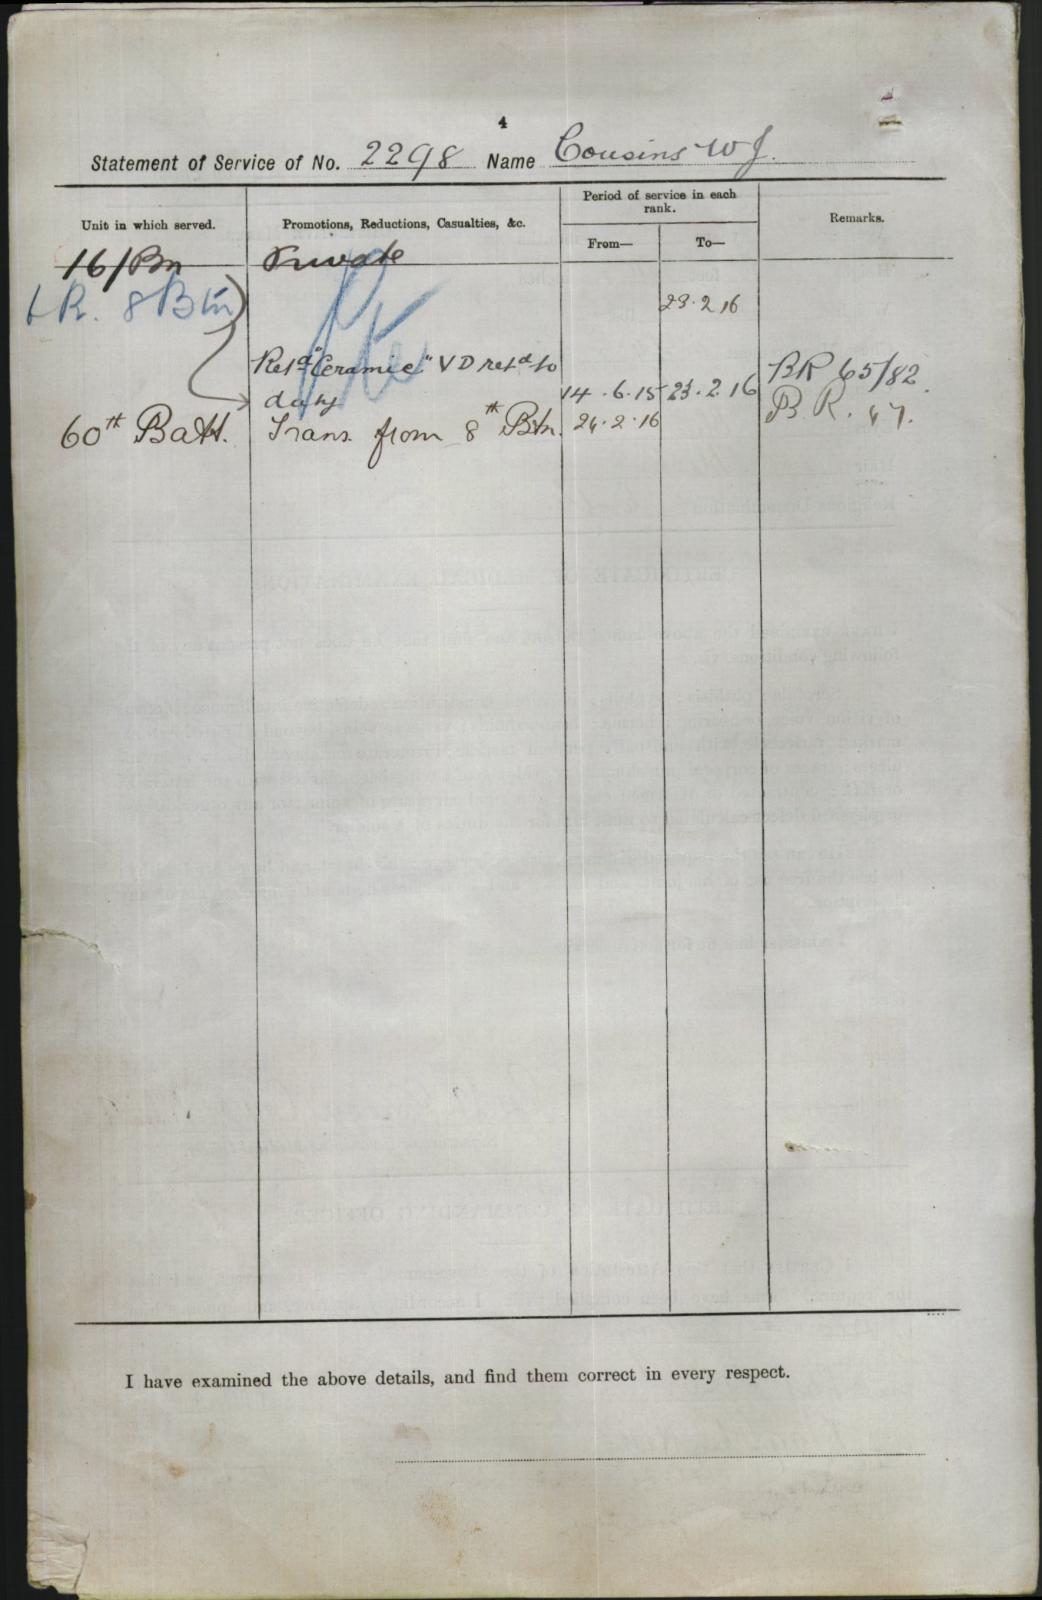 4
Statement of Service of No. 2298 Name Cousins W J.
Unit in which served.
Promotions, Reductions, Casualties, &c.
Period of service in each rank.
From—
To—
Remarks.
16/Bn Private
R. 8 Btn Pte
23.2.16
Retd "Ceramic" V D retd to
duty 14.6.15 23.2.16 BR 65/82
60th Batt. Trans. from 8th Btn. 24.2.16 B.R. 47.
I have examined the above details, and find them correct in every respect.